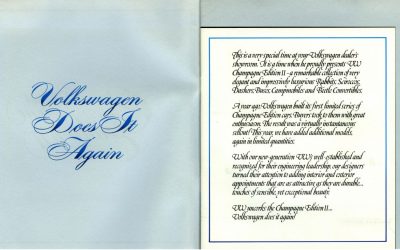 Volkswagen
Does It
Again
This is a very special time at your Volkswagen dealer's
showroom. It is a time when he proudly presents VW
Champagne Edition II - a remarkable collection of very
elegant and impressively luxurious Rabbits, Sciroccos,
Dashers, Buses, Campmobiles and Beetle Convertibles.
A year ago Volkswagen built its first limited series of
Champagne Edition cars. Buyers took to them with great
enthusiasm. The result was a virtually instantaneous
sellout! This year, we have added additional models,
again in limited quantities.
With our new-generation VW's well-established and
recognized for their engineering leadership, our designers
turned their attention to adding interior and exterior
appointments that are as attractive as they are durable...
touches of sensible, yet exceptional beauty.
VW uncorks the Champagne Edition II...
Volkswagen does it again!